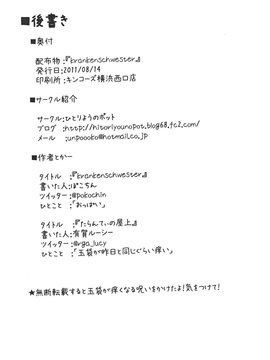 ■後書き
■奥付
配布物:『krankenschwester』
発行日:2011/08/14
印刷所:キンコーズ横浜西口店
■サークル紹介
サークル:ひとりようのポット
ブログ :http://hitoriyounopot.blog68.fc2.com/
メール :unpoooko@hotmail.co.jp
■作者とかー
タイトル :『krankenschwester』
書いた人:ぽこちん
ツイッター:@pokochin
ひとこと :「おっぱい」
タイトル :『たらんてぃの屋上』
書いた人:有賀ルーシー
ツイッター:@rga_lucy
ひとこと :「玉袋が昨日と同じぐらい痒い」
★無断転載すると玉袋が痒くなる呪いをかけたよ!気をつけて!